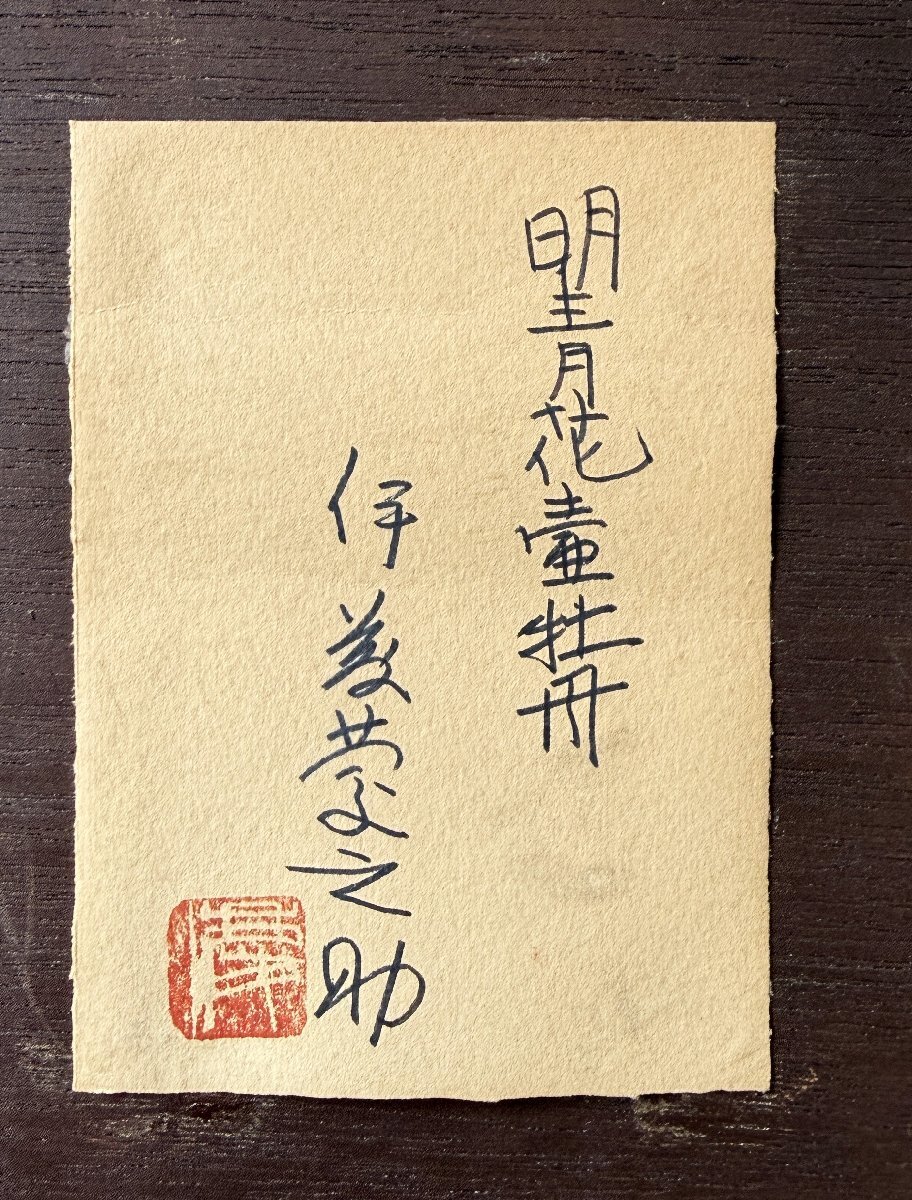 望月花壷牡丹
伊藤慶之助